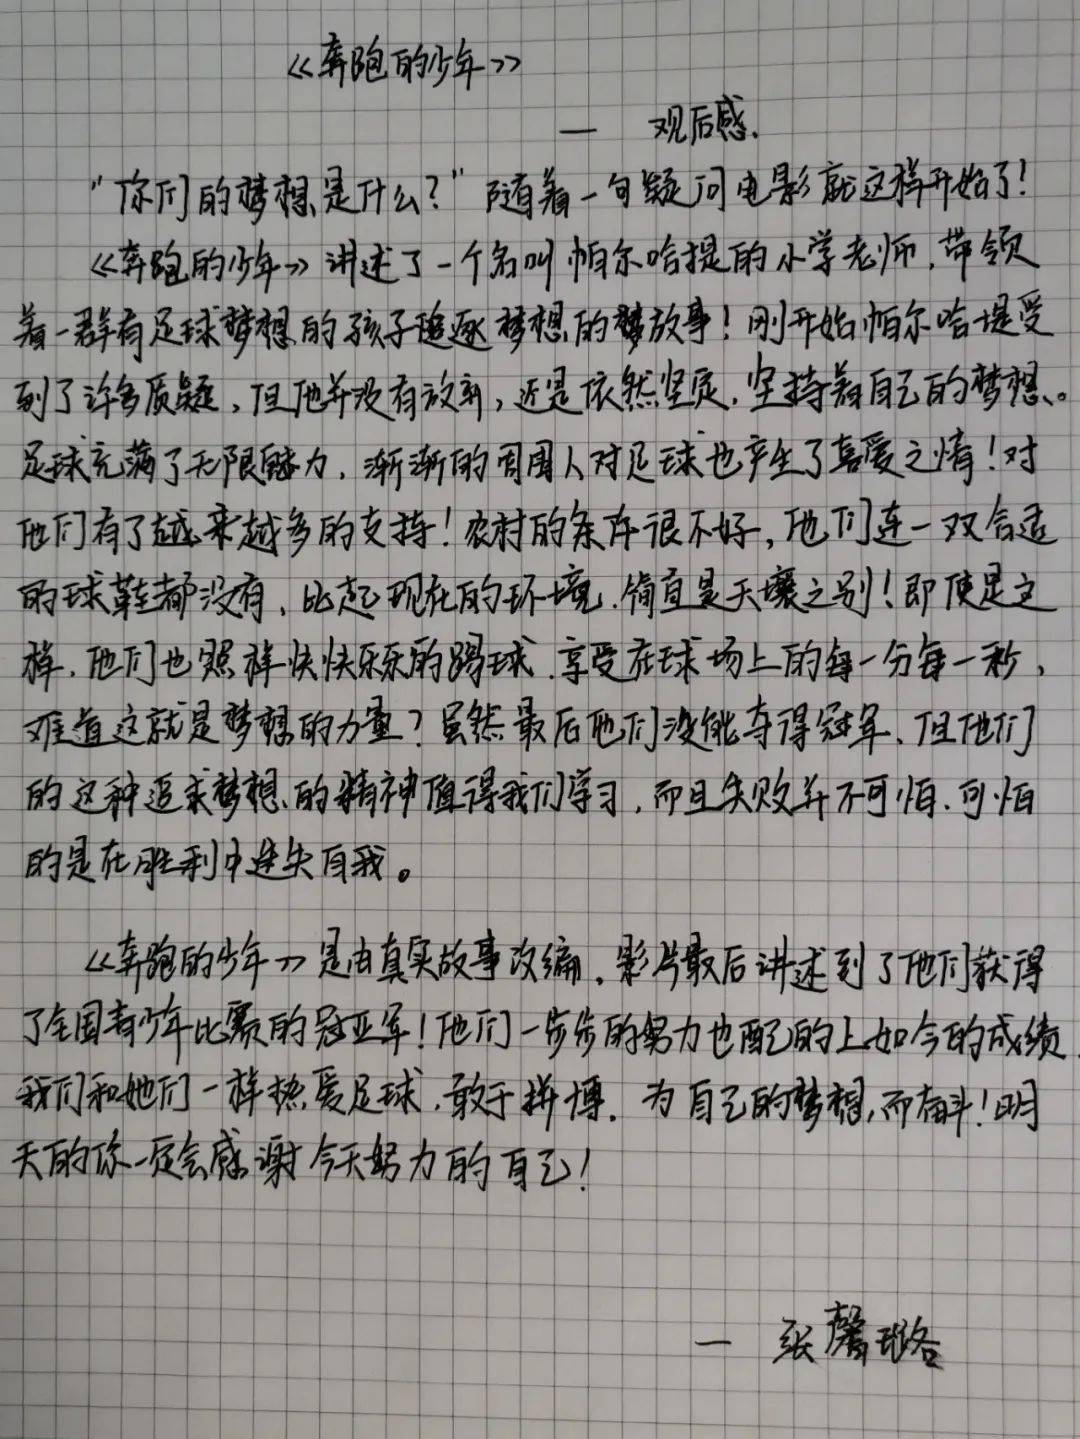 《奔跑的少年》
— 观后感.
“你们的梦想是什么？”随着一句疑问电影就这样开始了！
《奔跑的少年》讲述了一个名叫帕尔哈提的小学老师，带领
着一群有足球梦想的孩子追逐梦想的梦故事！刚开始帕尔哈提受
到了许多质疑，但他并没有放弃，还是依然坚定，坚持着自己的梦想。
足球充满了无限魅力，渐渐的周围人对足球也产生了喜爱之情！对
他们有了越来越多的支持！农村的条件很不好，他们连一双合适
的球鞋都没有，比起现在的环境，简直是天壤之别！即使是这
样，他们也照样快快乐乐的踢球，享受在球场上的每一分每一秒，
难道这就是梦想的力量？虽然最后他们没能夺得冠军，但他们
的这种追求梦想的精神值得我们学习，而且失败并不可怕，可怕
的是在胜利中迷失自我。
《奔跑的少年》是由真实故事改编，影片最后讲述到了他们获得
了全国青少年比赛的冠亚军！他们一步步的努力也配的上如今的成绩，
我们和她们一样热爱足球，敢于拼博，为自己的梦想，而奋斗！明
天的你一定会感谢今天努力的自己！
— 张馨珞